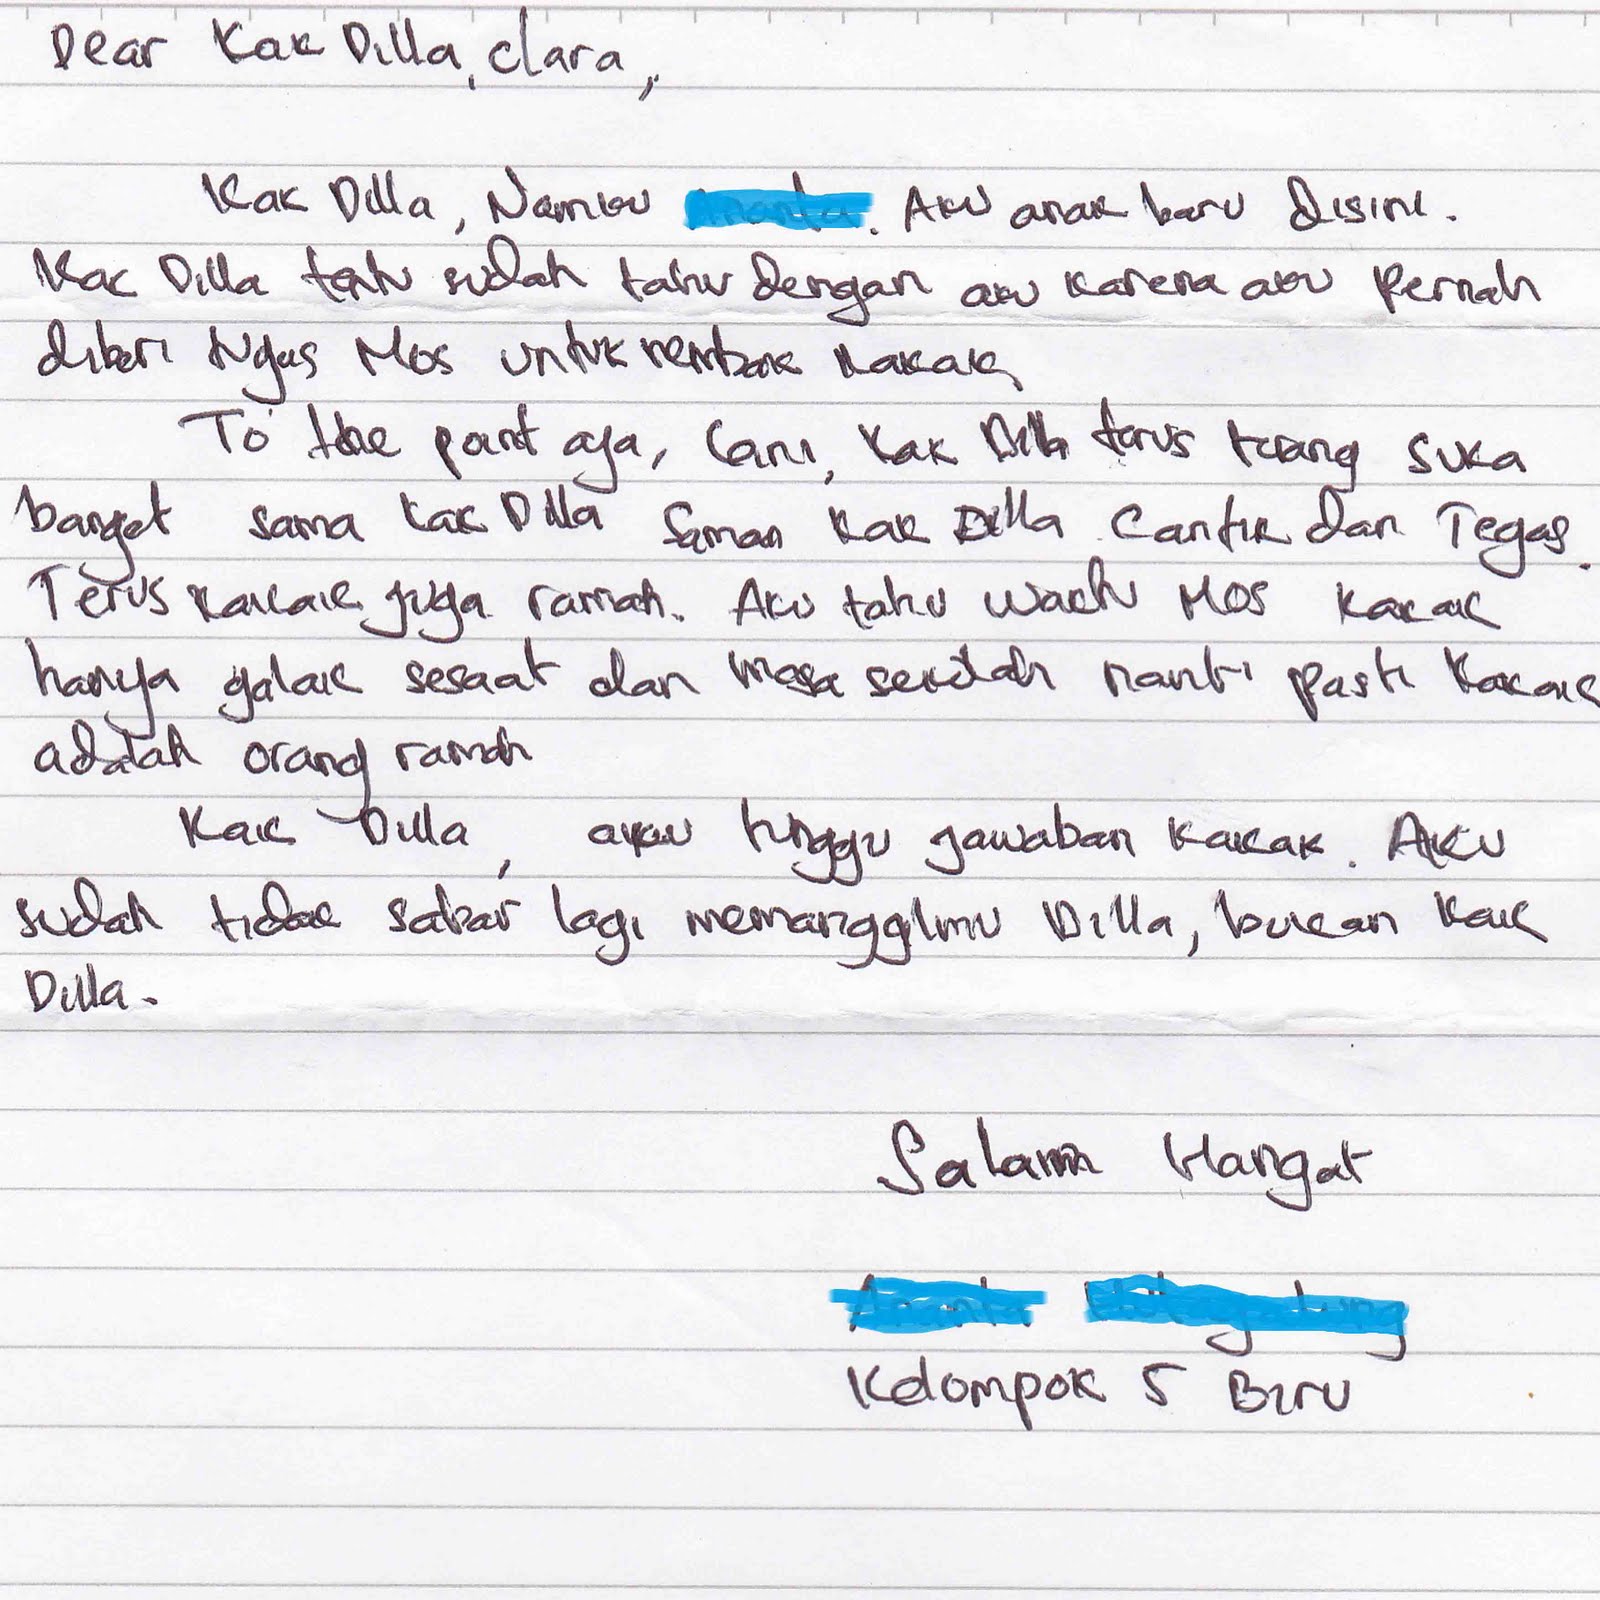 Dear Kak Dilla, Clara,
Kak Dilla, Namku. Aku anak baru disini.
Kak Dilla tentu sudah tahu dengan aku karena aku Pernah
diberi tugas Mos untuk nembak kakak,
To the point aja, Kak Dilla terus terang suka
banget sama kak Dilla Kak Dilla Cantik dan Tegas.
Terus kakak juga ramah. Aku tahu waktu MOS kakak
hanya galak sesaat dan masa sekolah nanti pasti kakak
adalah orang ramah
Kak Dilla, aku tunggu jawaban kakak. Aku
sudah tidak sabar lagi memanggilmu Dilla, bukan Kak
Dilla.
Salam Hangat
Kelompok 5 Biru